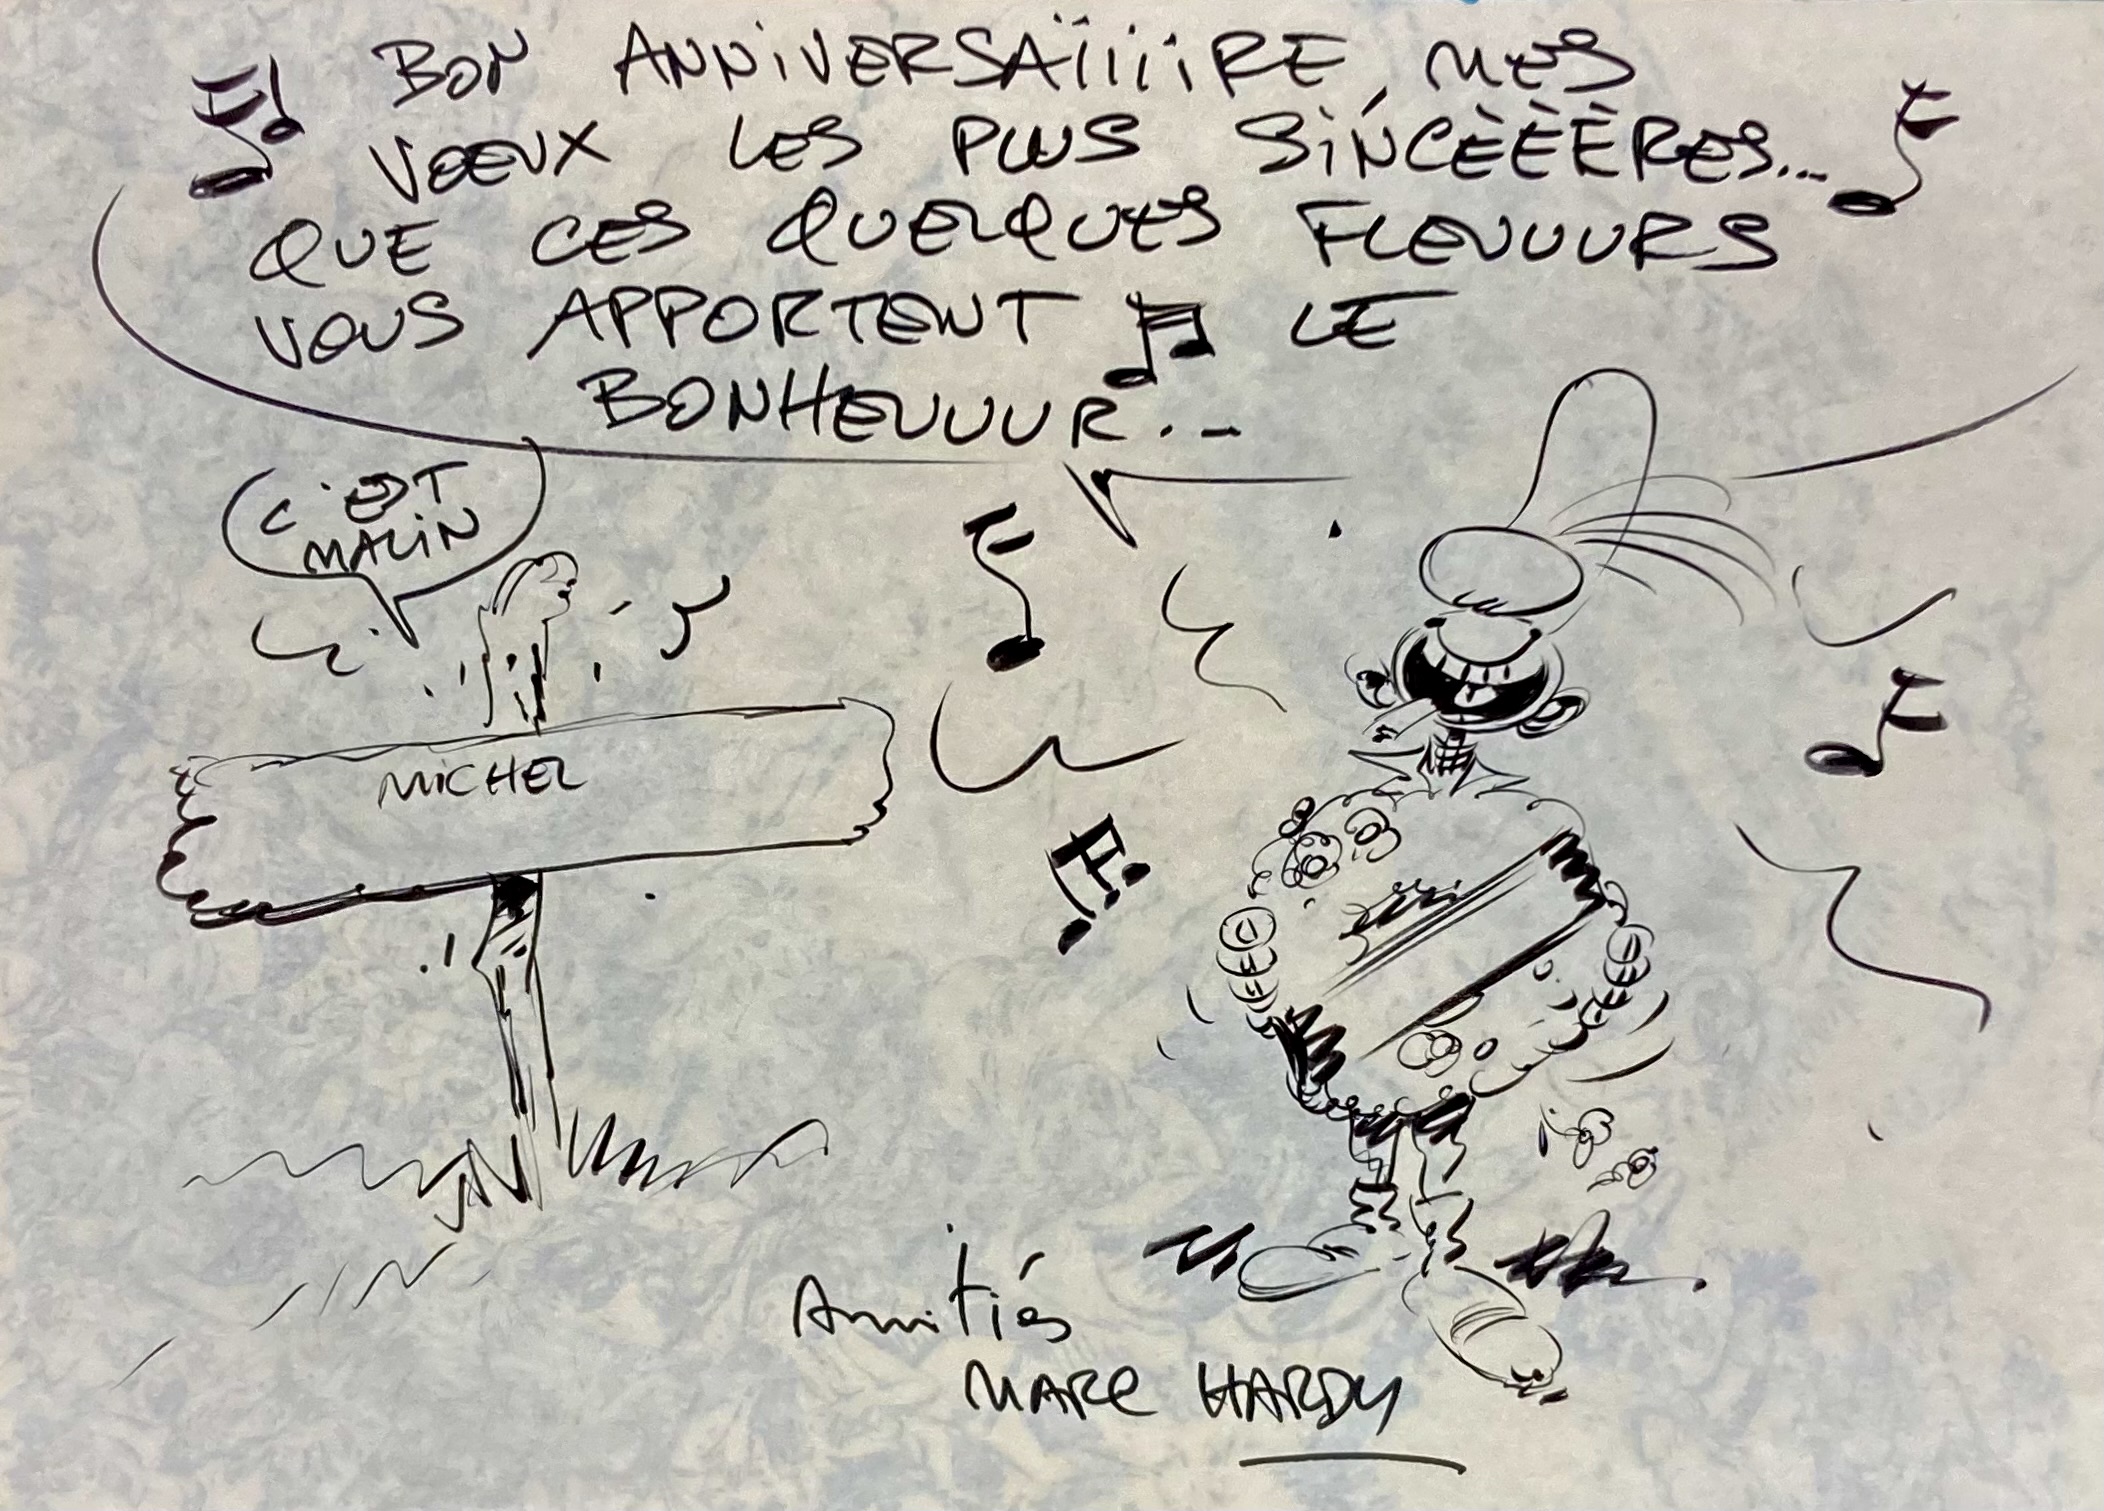 BON ANNIVERSAÏiiiRE, MES
VŒUX LES PLUS SINCÈÈÈRES...
QUE CES QUELQUES FLEUUURS
VOUS APPORTENT LE
BONHEUUUR...
C'EST
MALIN
MICHEL
Amitiés
MARC HARDY